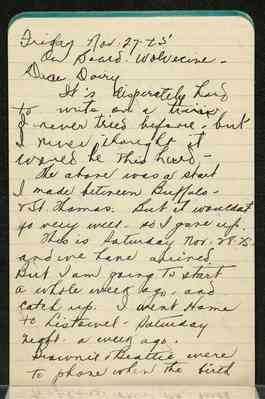 Friday Nov. 27-25
On Board. Wolverine.
Dear Dairy
It's desperately hard
to write on a train
I never tried before, but
I never thought it
would be this hard.
The above was a start
I made between Buffalo
& St. Thomas. But it wouldn't
go very well. so I gave up.
This is Saturday Nov. 28-25
and we have arrived.
But I am going to start
a whole week ago. and
catch up. I went Home
to Listowel - Saturday
night. a week ago.
Brownie & Beattie were
to phone when the birth